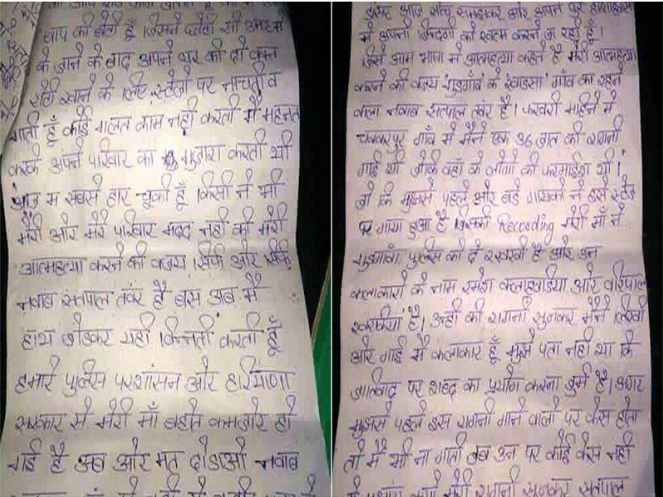 बाप की बेटी हूँ जिसने छोटी सी उम्र में
के जाने के बाद अपने घर की दो वक्त
रोटी खाने के लिए स्टेजों पर नाचती व
गाती हूँ कोई गलत काम नहीं करती मैं मेहनत
करके अपने परिवार का गुजारा करती थी
आज मैं सबसे हार चुकी हूँ किसी ने भी
मेरी और मेरे परिवार मदद नहीं की मेरी
आत्महत्या करने की वजह सिर्फ और सिर्फ
नवाब सतपाल तंवर है बस अब मैं
हाथ जोडकर यही विनती करती हूँ
हमारे पुलिस परशासन और हरियाणा
सरकार से मेरी माँ बहोत कमजोर हो
गई है अब और मत दोडाओ नवाब
आज सोच समझकर और अपने पूरे
में अपनी जिंदगी को खत्म करने जा रही हूँ।
जिसे आम भाषा में आत्महत्या कहते हैं मेरी आत्महत्या
करने की वजह गुडगाँव के खांडसा गाँव का रहने
वाला नवाब सतपाल तंवर है। फरवरी महिने में
चक्करपुर गाँव में मैंने एक 36 जात की रागनी
गाई थी जोकि वहाँ के लोगों की फरमाईश थी।
जो कि मुझसे पहले और बडे गायको ने इसे स्टेज
पर गाया हुआ है जिसकी Recording मेरी माँ ने
गुडगाँवा पुलिस को दे रखखी है और उन
कलाकारों के नाम रमेश कलाहवडिया और वरिपाल
खरकिया है। उन्ही की रागनी सुनकर मैंने लिखी
और गाई मैं कलाकार हूँ मुझे पता नहीं था कि
जातिवाद पर शब्द का प्रयोग करना जुर्म है। अगर
मुझसे पहले इस रागनी गाने वालो पर केस होता
तो मैं भी ना गाती जब उन पर कोई केस नहीं
मेरी रागनी सुनकर सतपाल